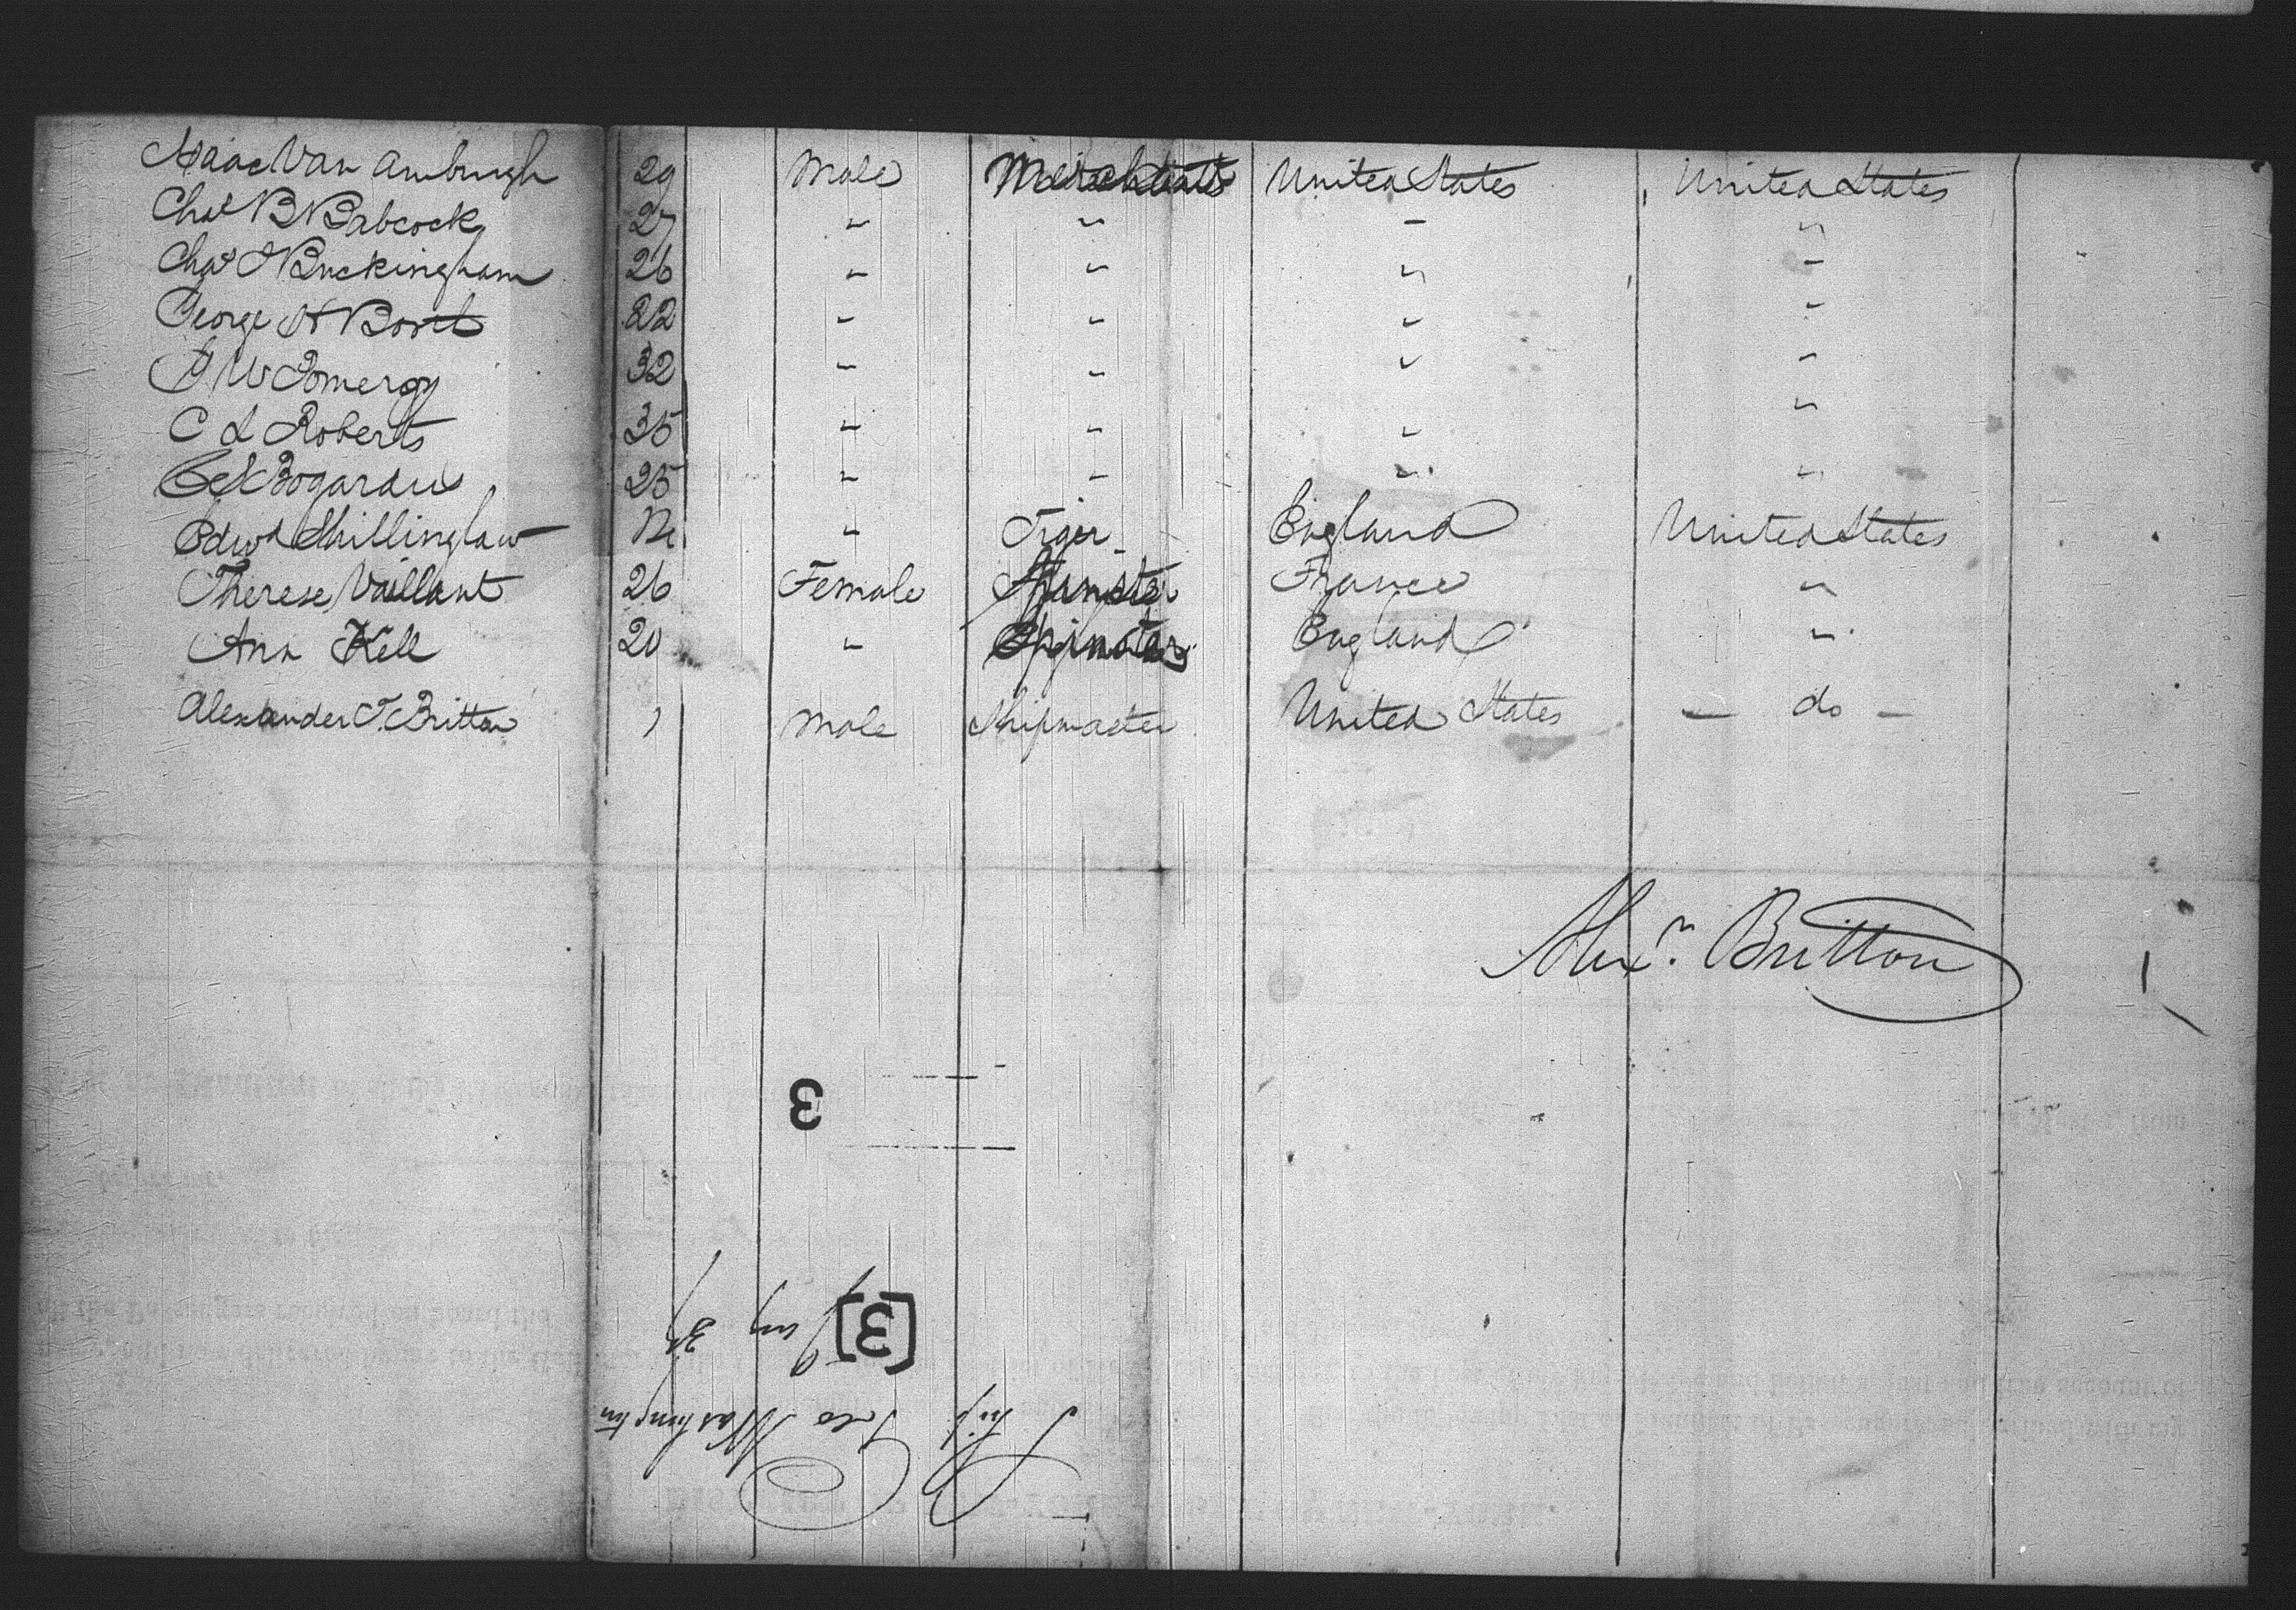 Isaac Van Amburgh 29 Male Merchant United States United States
Chas B Babcock 27 " " " "
Chas J Buckingham 26 " " " "
George H Bort 22 " " " "
W Pomeroy 32 " " " "
C L Roberts 35 " " " "
Bogardus 25 " " " "
Edwd Shillinglaw " Tiger England United States
Therese Vaillant 26 Female Spinster France "
Ann Kell 20 " Spinster England "
Alexander T. Britton Male Shipmaster United States — do —
Alexr. Britton
3
[3]
Jany 3d
Ship Geo Washington